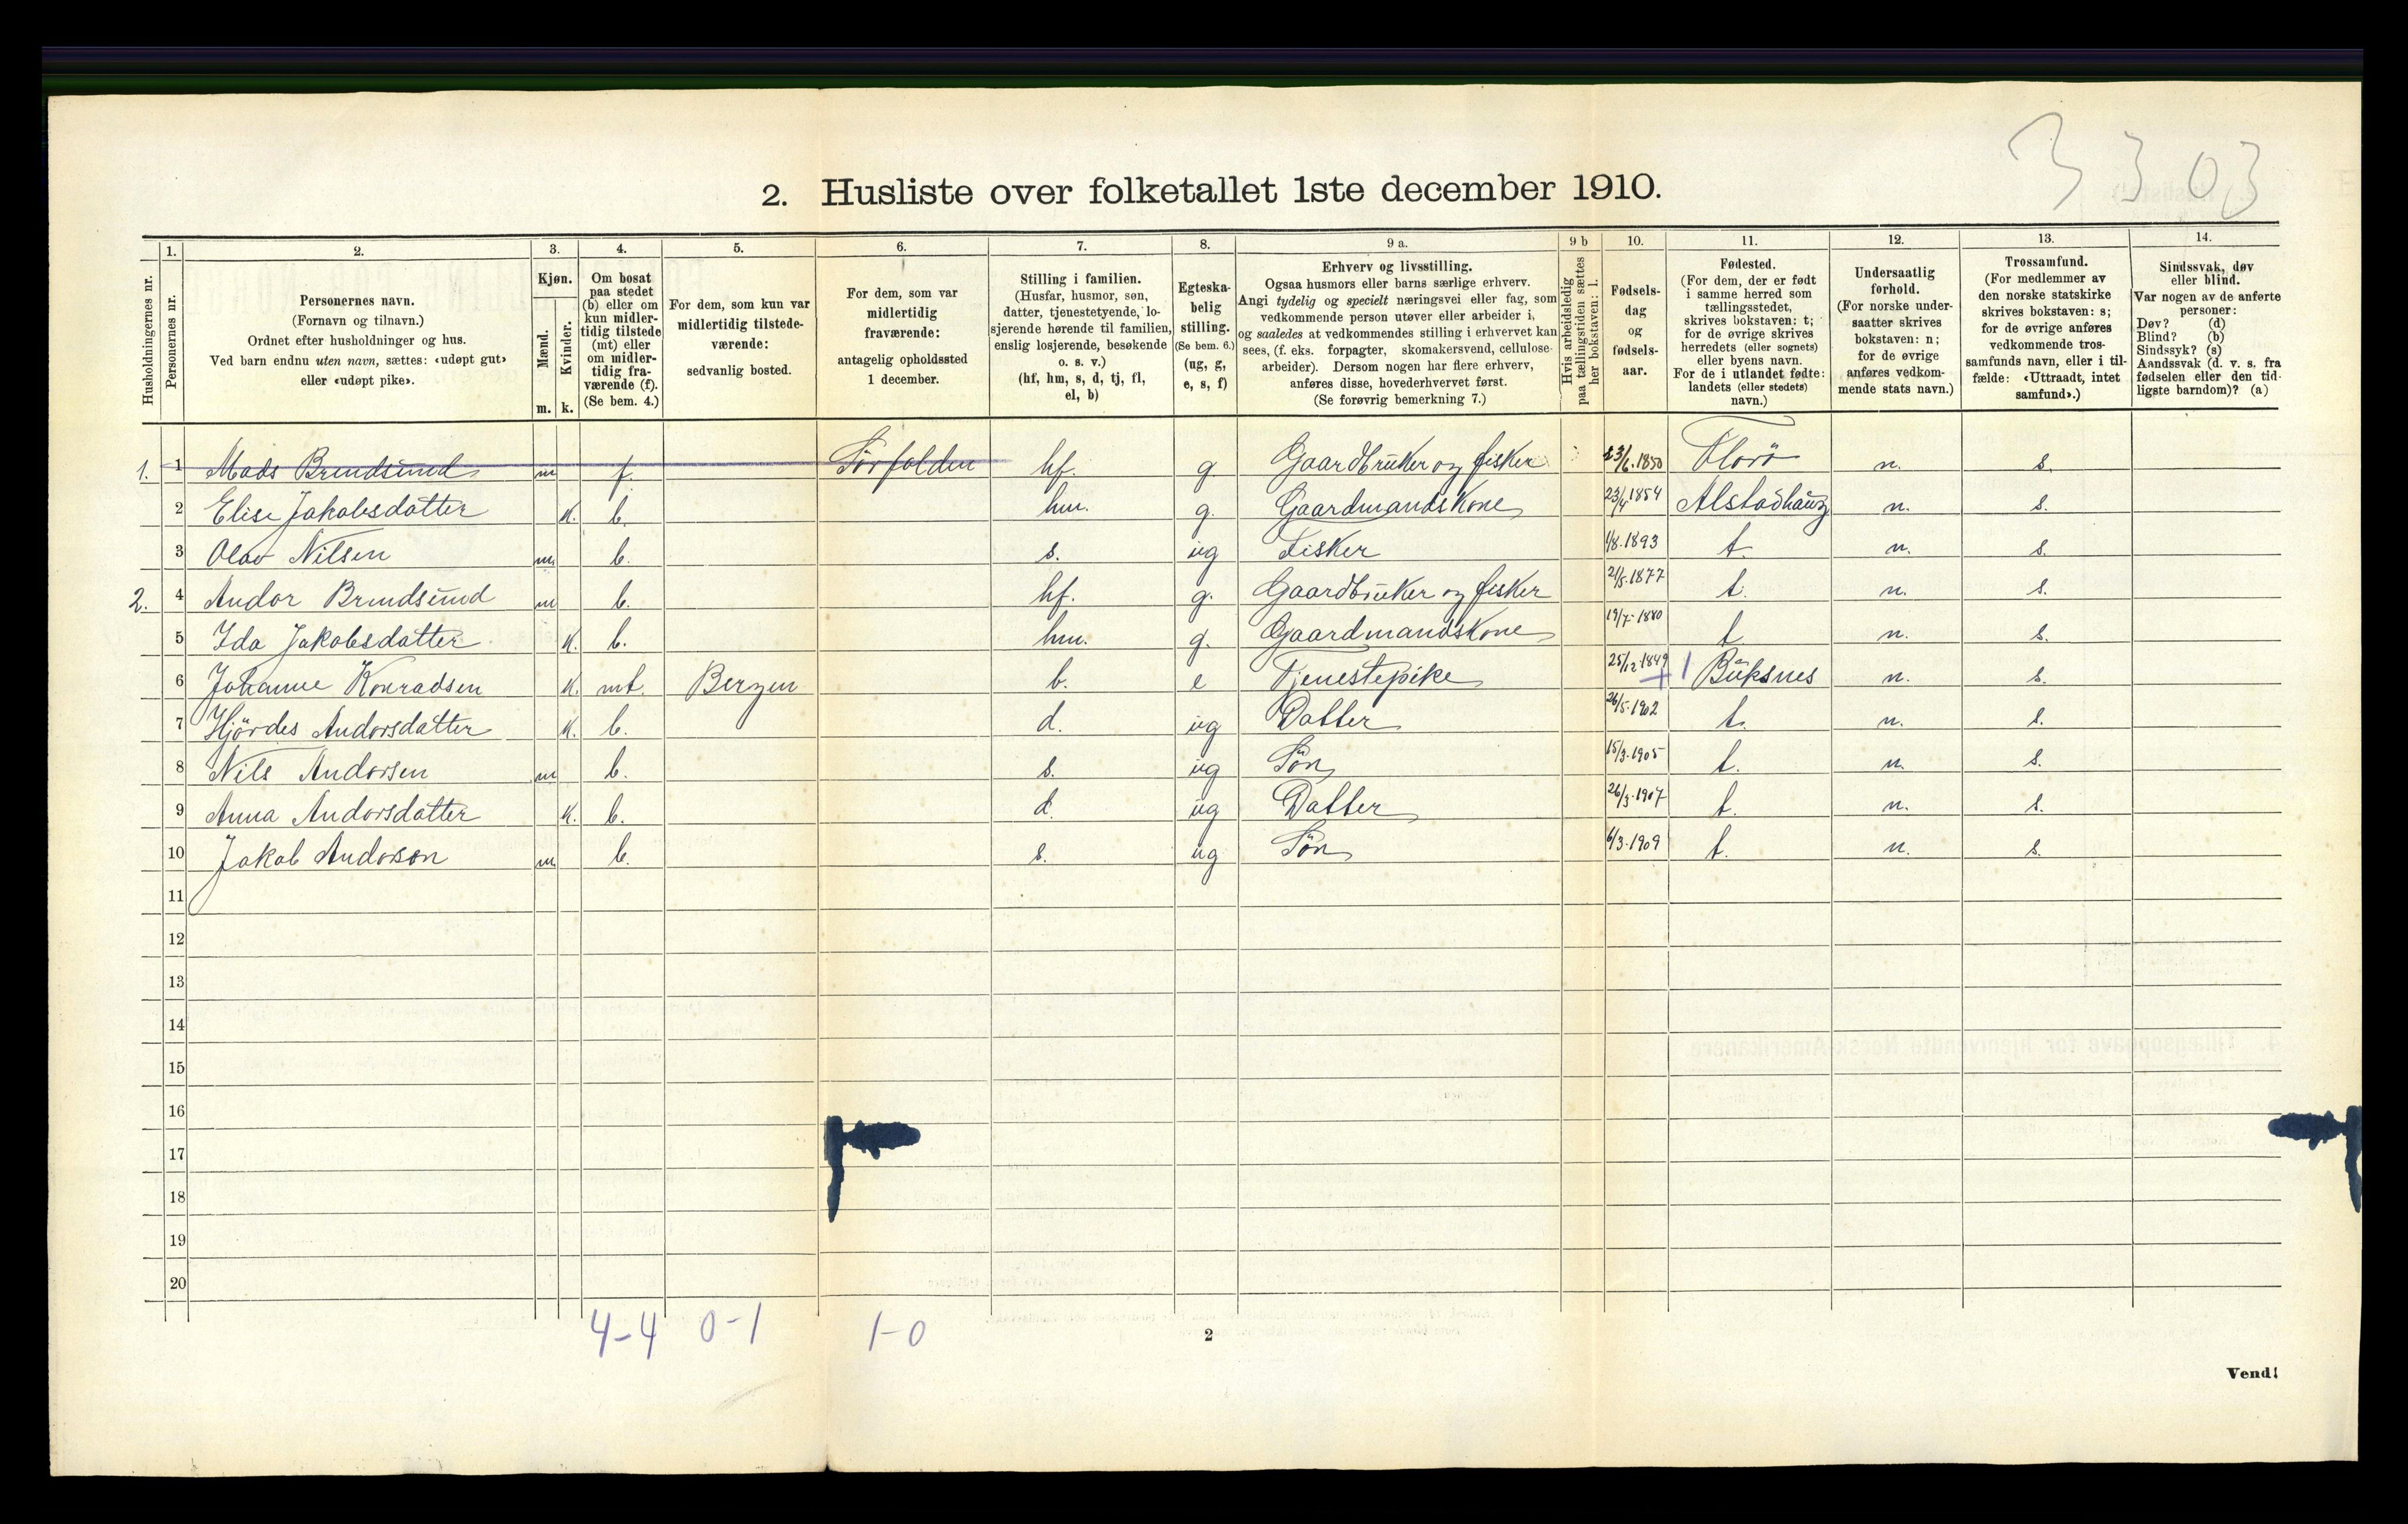 3303
2. Husliste over folketallet 1ste december 1910.
1. 2. 3. 4. 5. 6. 7. 8. 9 a. 9 b 10. 11. 12. 13. 14.
Husholdningernes nr.
Personernes nr.
Personernes navn.
(Fornavn og tilnavn.)
Ordnet efter husholdninger og hus.
Ved barn endnu uten navn, sættes: «udøpt gut»
eller «udøpt pike».
Kjøn.
Mænd.
Kvinder.
m. k.
Om bosat
paa stedet
(b) eller om
kun midler-
tidig tilstede
(mt) eller
om midler-
tidig fra-
værende (f).
(Se bem. 4.)
For dem, som kun var
midlertidig tilstede-
værende:
sedvanlig bosted.
For dem, som var
midlertidig
fraværende:
antagelig opholdssted
1 december.
Stilling i familien.
(Husfar, husmor, søn,
datter, tjenestetyende, lo-
sjerende hørende til familien,
enslig losjerende, besøkende
o. s. v.)
(hf, hm, s, d, tj, fl,
el, b)
Egteska-
belig
stilling.
(Se bem. 6.)
(ug, g,
e, s, f)
Erhverv og livsstilling.
Ogsaa husmors eller barns særlige erhverv.
Angi tydelig og specielt næringsvei eller fag, som
vedkommende person utøver eller arbeider i,
og saaledes at vedkommendes stilling i erhvervet kan
sees, (f. eks. forpagter, skomakersvend, cellulose-
arbeider). Dersom nogen har flere erhverv,
anføres disse, hovederhvervet først.
(Se forøvrig bemerkning 7.)
Hvis arbeidsledig
paa tællingstiden sættes
her bokstaven: l.
Fødsels-
dag
og
fødsels-
aar.
Fødested.
(For dem, der er født
i samme herred som
tællingsstedet,
skrives bokstaven: t;
for de øvrige skrives
herredets (eller sognets)
eller byens navn.
For de i utlandet fødte:
landets (eller stedets)
navn.)
Undersaatlig
forhold.
(For norske under-
saatter skrives
bokstaven: n;
for de øvrige
anføres vedkom-
mende stats navn.)
Trossamfund.
(For medlemmer av
den norske statskirke
skrives bokstaven: s;
for de øvrige anføres
vedkommende tros-
samfunds navn, eller i til-
fælde: «Uttraadt, intet
samfund».)
Sindssvak, døv
eller blind.
Var nogen av de anførte
personer:
Døv? (d)
Blind? (b)
Sindssyk? (s)
Aandssvak (d. v. s. fra
fødselen eller den tid-
ligste barndom)? (a)
1. 1 Mads Brendsund m f. Sörfolden hf. g Gaardbruker og fisker 23/6.1850 Florö n. s.
2 Elise Jakobsdatter K. b. hm. g. Gaardmandskone 23/4 1854 Alstadhaug n. s.
3 Olav Nilsen m b. s. ug Fisker 1/8.1893 t. n. s.
2. 4 Andor Brendsund m b. hf. g. Gaardbruker og fisker 21/5.1877 t. n. s.
5 Ida Jakobsdatter K. b. hm. g. Gaardmandskone 19/7-1880 t n. s.
6 Johanne Konradsen K. mt. Bergen b. e Tjenestepike 25/12-1849 Buksnes n. s.
7 Hjördes Andorsdatter K. b. d. ug Datter 26/5-1902 t. n. s.
8 Nils Andorsen m b. s. ug Sön 15/3.1905 t. n. s.
9 Anna Andorsdatter K. b. d. ug Datter 26/3-1907 t. n. s.
10 Jakob Andorson m b. s. ug Sön 6/3-1909 t. n. s.
11
12
13
14
15
16
17
18
19
20
4-4 0-1 1-0
2
Vend!